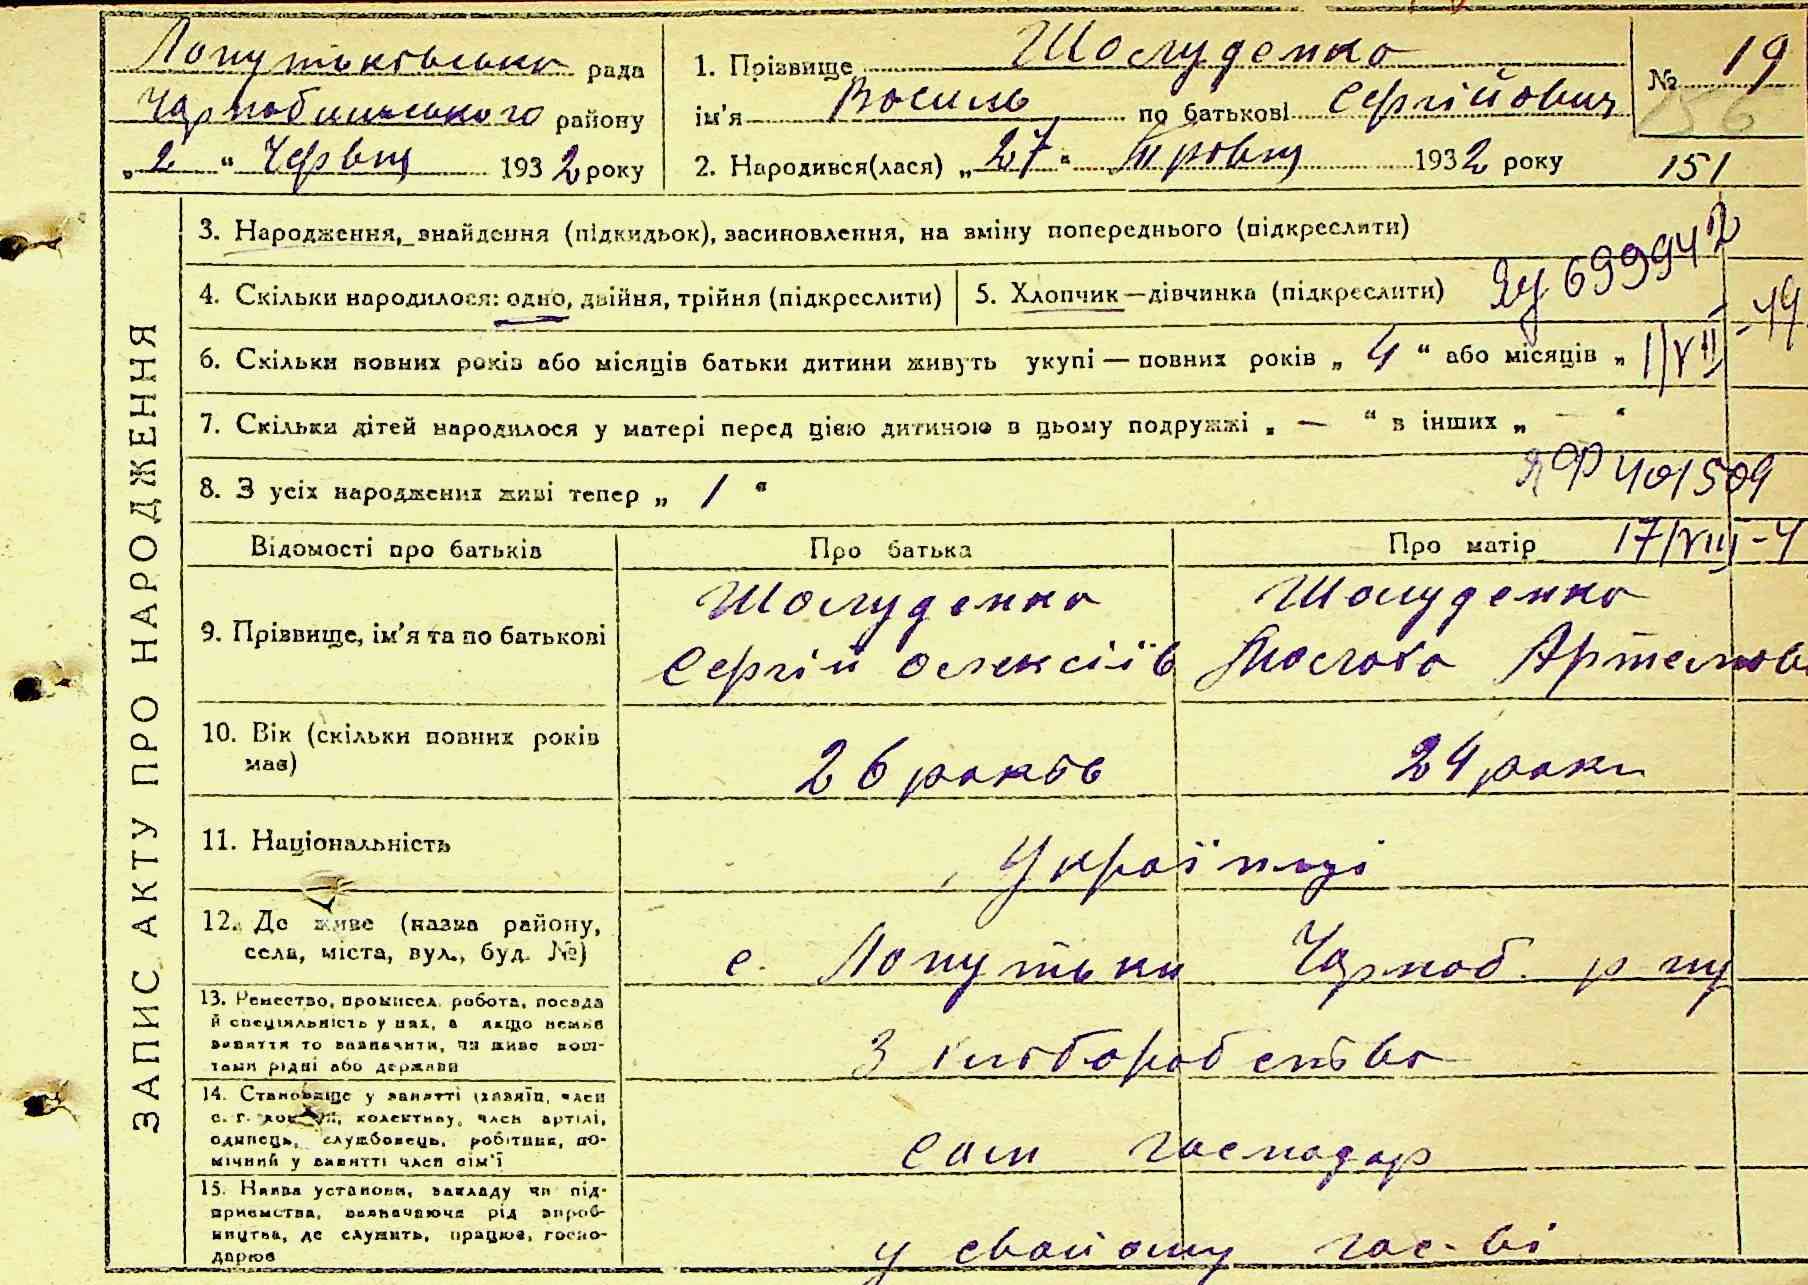 Лопутьківська рада
Чорнобильського району
„2“ Червня 1932 року
1. Прізвище Шолуденко
ім'я Василь по батькові Сергійович
2. Народився(лася) „27“ Травня 1932 року
№ 19
156
151
ЗАПИС АКТУ ПРО НАРОДЖЕННЯ
3. Народження, знайдення (підкидьок), засиновлення, на зміну попереднього (підкреслити)
4. Скільки народилося: одно, двійня, трійня (підкреслити)
5. Хлопчик—дівчинка (підкреслити)
699942
6. Скільки повних років або місяців батьки дитини живуть укупі — повних років „ 4 “ або місяців „
7. Скільки дітей народилося у матері перед цією дитиною в цьому подружжі „ — “ в інших „ — “
8. З усіх народжених живі тепер „ 1 “
ЯФ 401509
Відомості про батьків
Про батька
Про матір
17/VIII-4
9. Прізвище, ім'я та по батькові
Шолуденко
Сергій Олексіїв
Шолуденко
Артемов
10. Вік (скільки повних років має)
26 років
24 роки
11. Національність
Українці
12. Де живе (назва району, села, міста, вул., буд. №)
с. Лопутьки Чорноб. р-ну
13. Ремество, промисел, робота, посада
й спеціяльність у них, а якщо немає
заняття то зазначити, чи живе кош-
тами рідні або держави
З хліборобства
14. Становище у занятті (хазяїн, член
с. г. комуни, колективу, член артілі,
одинець, службовець, робітник, по-
мічний у занятті член сім'ї
Сам господар
15. Назва установи, закладу чи під-
приємства, зазначаючи рід вироб-
ництва, де служить, працює, госпо-
дарює
у свойому гос-ві